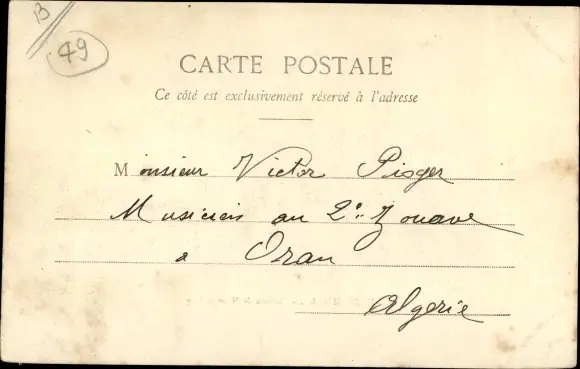 B
49
CARTE POSTALE
Ce côté est exclusivement réservé à l'adresse
Monsieur Victor Pioger
Musicien au 2e Zouave
a Oran
Algerie